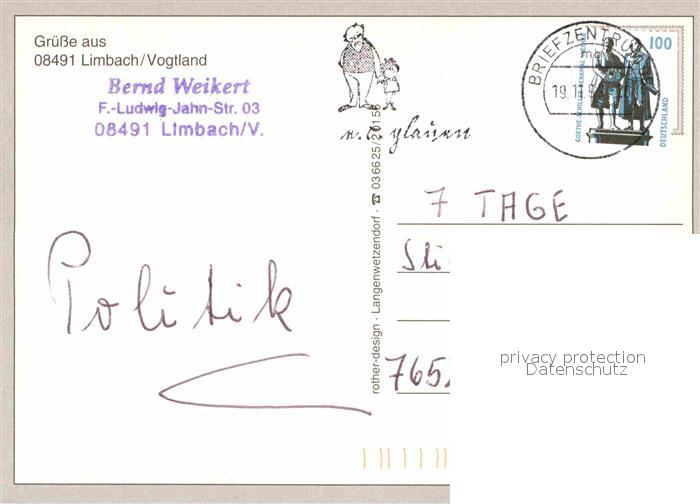 Grüße aus
08491 Limbach/Vogtland
Bernd Weikert
F.-Ludwig-Jahn-Str. 03
08491 Limbach/V.
e.o.plauen
BRIEFZENTRUM
19.11.9
100
DEUTSCHLAND
rother-design · Langenwetzendorf · ☎ 036625/2015
7 TAGE
Politik
765
privacy protection
Datenschutz